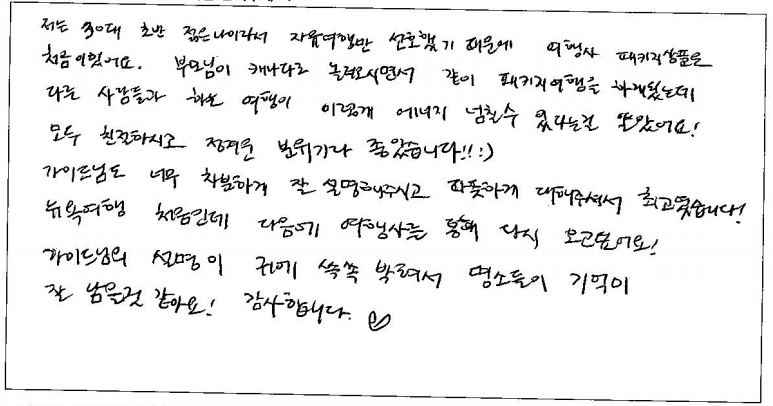 저는 30대 초반 젊은나이라서 자유여행만 선호했기 때문에 여행사 패키지상품은
처음이었어요. 부모님이 캐나다로 놀러오시면서 같이 패키지여행을 하게됐는데
다른 사람들과 하는 여행이 이렇게 에너지 넘칠수 있다는걸 알았어요!
모두 친절하시고 정겨운 분위기라 좋았습니다!!:)
가이드님도 너무 차분하게 잘 설명해주시고 따뜻하게 대해주셔서 최고였습니다!
뉴욕여행 처음인데 다음에 여행사를 통해 다시 오고싶어요!
가이드님의 설명이 귀에 쏙쏙 박혀서 명소들이 기억이
잘 남을것 같아요! 감사합니다.